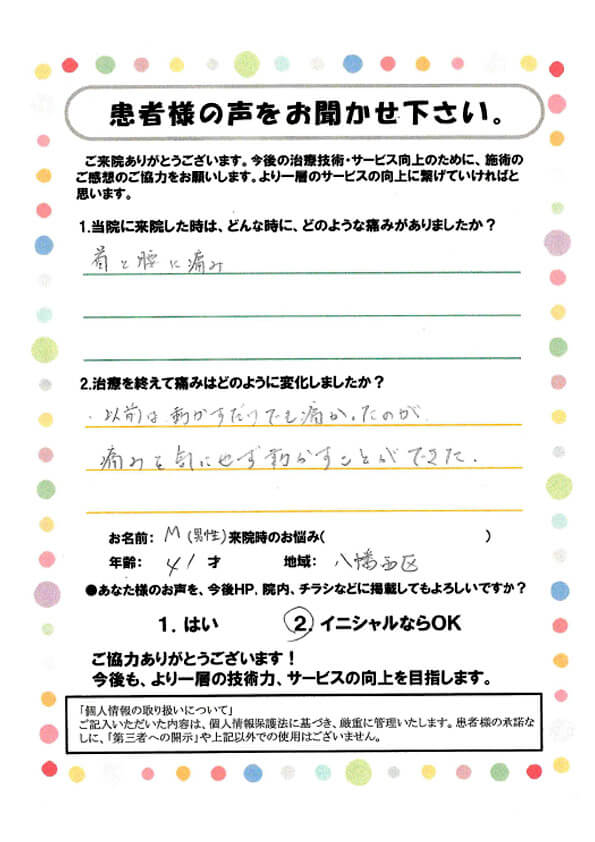 患者様の声をお聞かせ下さい。
ご来院ありがとうございます。今後の治療技術・サービス向上のために、施術の
ご感想のご協力をお願いします。より一層のサービスの向上に繋げていければと
思います。
1.当院に来院した時は、どんな時に、どのような痛みがありましたか?
首と腰に痛み
2.治療を終えて痛みはどのように変化しましたか?
・以前は動かすだけでも痛かったのが
痛みを気にせず動かすことができた.
お名前: M (男性) 来院時のお悩み( )
年齢: 41 才 地域: 八幡西区
●あなた様のお声を、今後HP,院内、チラシなどに掲載してもよろしいですか?
1. はい 2. イニシャルならOK
ご協力ありがとうございます!
今後も、より一層の技術力、サービスの向上を目指します。
「個人情報の取り扱いについて」
ご記入いただいた内容は、個人情報保護法に基づき、厳重に管理いたします。患者様の承諾な
しに、「第三者への開示」や上記以外での使用はございません。